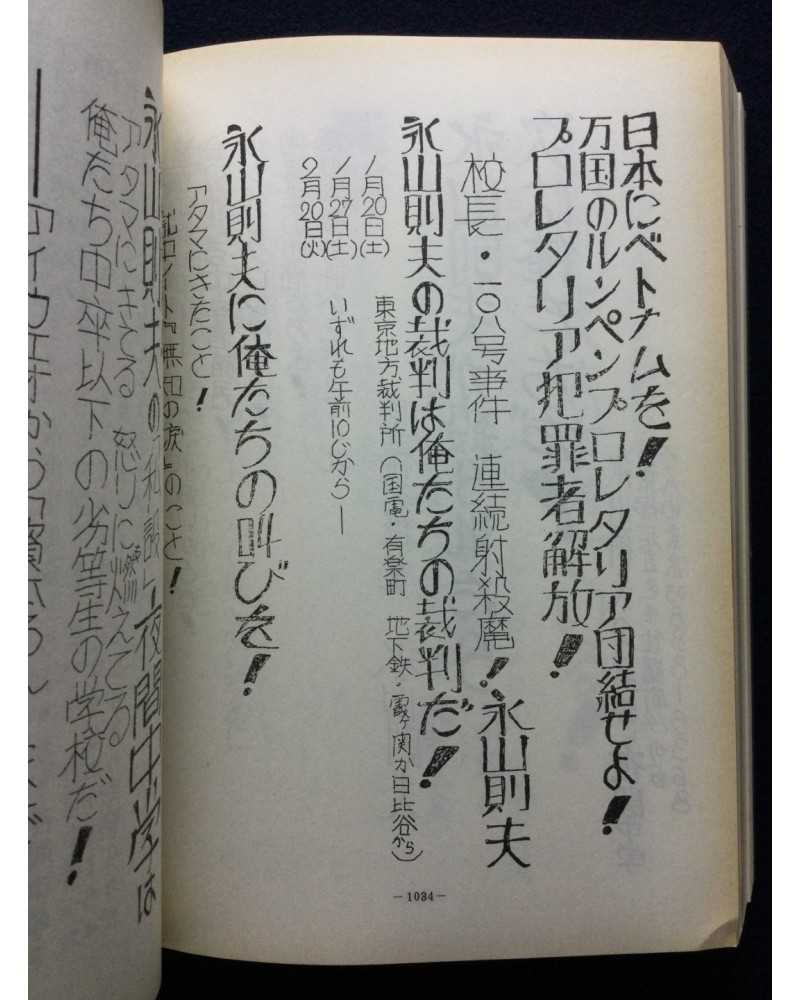 日本にベトナムを！
万国のルンペンプロレタリア団結せよ！
プロレタリア犯罪者解放！
校長・一〇八号事件 連続射殺魔！永山則夫
永山則夫の裁判は俺たちの裁判だ！
1月20日(土)
1月27日(土)
2月20日(火)
東京地方裁判所（国電・有楽町 地下鉄・霞ヶ関か日比谷から）
いずれも午前10じから—
永山則夫に俺たちの叫びを！
アタマにきたこと！
『無知の涙』のこと！
—1034—
永山則夫の 夜間中学は
アタマにきてる 怒りに燃えてる
俺たち中卒以下の劣等生の学校だ！